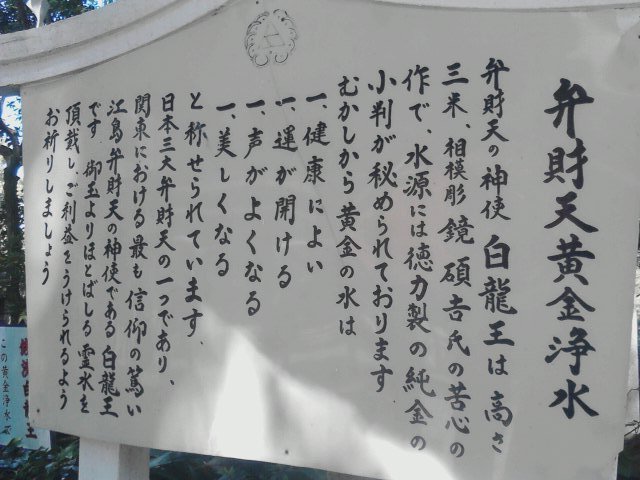 弁財天黄金浄水
弁財天の神使 白龍王は 高さ
三米、相模彫 鏡 碩吉氏の苦心の
作で、水源には徳力製の純金の
小判が秘められております
むかしから黄金の水は
一、健康によい
一、運が開ける
一、声がよくなる
一、美しくなる
と称せられています、
日本三大弁財天の一つであり、
関東における最も信仰の篤い
江島弁財天の神使である白龍王
です 御玉よりほとばしる霊水を
頂戴し、ご利益をうけられるよう
お祈りしましょう
白龍王
この黄金浄水は